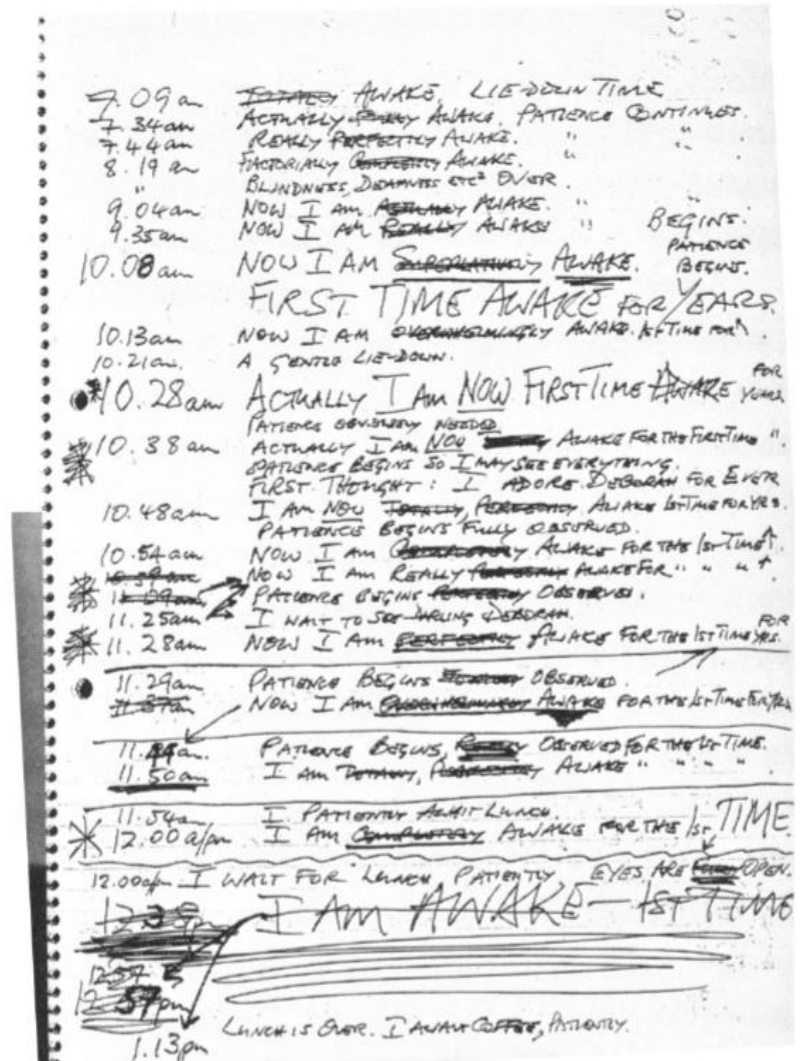 7.09am TOTALLY AWAKE. LIE-DOWN TIME
7.34am ACTUALLY FULLY AWAKE. PATIENCE CONTINUES.
7.44am REALLY PERFECTLY AWAKE. " "
8.19am FACTORIALLY COMPLETELY AWAKE. " "
" BLINDNESS, DEAFNESS ETC² OVER.
9.04am NOW I AM ACTUALLY AWAKE. " "
9.35am NOW I AM REALLY AWAKE " BEGINS.
10.08am NOW I AM SUPERLATIVELY AWAKE. PATIENCE BEGINS.
FIRST TIME AWAKE FOR YEARS.
10.13am NOW I AM OVERWHELMINGLY AWAKE. 1st TIME FOR ^
10.21am. A GENTLE LIE-DOWN.
10.28am ACTUALLY I AM NOW FIRST TIME AWAKE FOR YEARS
PATIENCE OBVIOUSLY NEEDED.
10.38am ACTUALLY I AM NOW AWAKE FOR THE FIRST TIME ".
PATIENCE BEGINS SO I MAY SEE EVERYTHING.
FIRST THOUGHT: I ADORE DEBORAH FOR EVER
10.48am I AM NOW TOTALLY, PERFECTLY AWAKE 1st TIME FOR YRS.
PATIENCE BEGINS FULLY OBSERVED.
10.54am NOW I AM COMPLETELY AWAKE FOR THE 1st TIME ↑.
10.59am NOW I AM REALLY PERFECTLY AWAKE FOR " " " ↑.
11.09am PATIENCE BEGINS OBSERVED.
11.25am I WAIT TO SEE DARLING DEBORAH.
11.28am NOW I AM PERFECTLY AWAKE FOR THE 1ST TIME FOR YRS.
11.29am PATIENCE BEGINS OBSERVED.
11.37am NOW I AM OVERWHELMINGLY AWAKE FOR THE 1st TIME FOR YRS
11.44am. PATIENCE BEGINS, OBSERVED FOR THE 1st TIME.
11.50am I AM TOTALLY, PERFECTLY AWAKE " " " "
11.54am I PATIENTLY AWAIT LUNCH.
12.00 a/pm I AM COMPLETELY AWAKE FOR THE 1st TIME.
12.00a/pm I WAIT FOR LUNCH PATIENTLY EYES ARE OPEN.
12.38pm I AM AWAKE — 1ST TIME
12.57pm
LUNCH IS OVER. I AWAIT COFFEE, PATIENTLY.
1.13pm